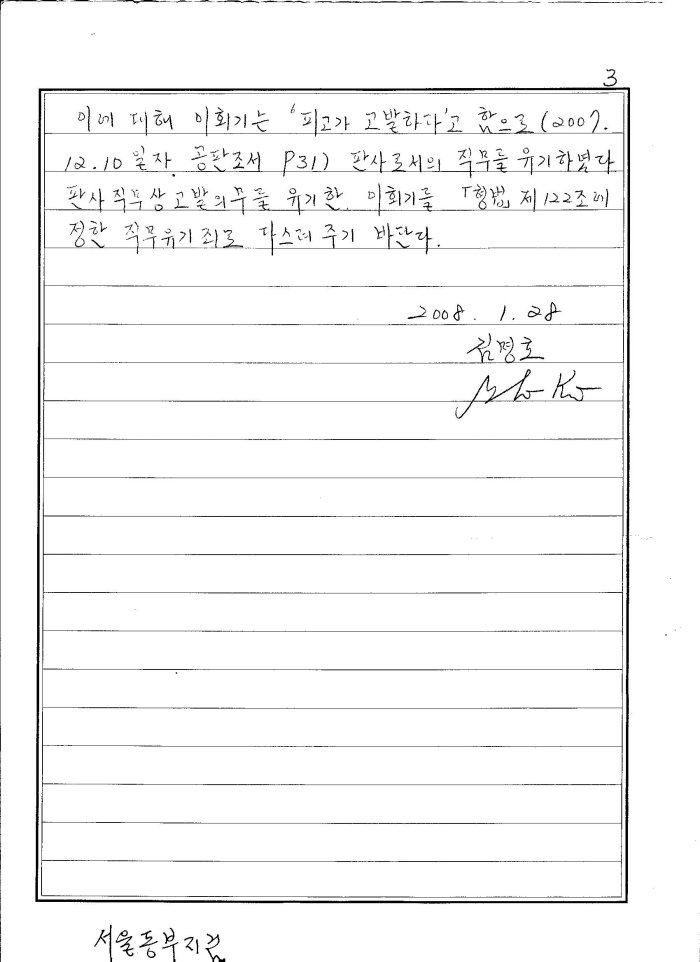 3
이에 대해 이회기는 '피고가 고발하다'고 함으로 (2007.
12.10 일자. 공판조서 P31) 판사로서의 직무를 유기하였다
판사직무상 고발의무를 유기한 이회기를 「형법」 제122조에
정한 직무유기 죄로 다스려 주기 바란다.
2008. 1. 28
김명호
서울동부지검